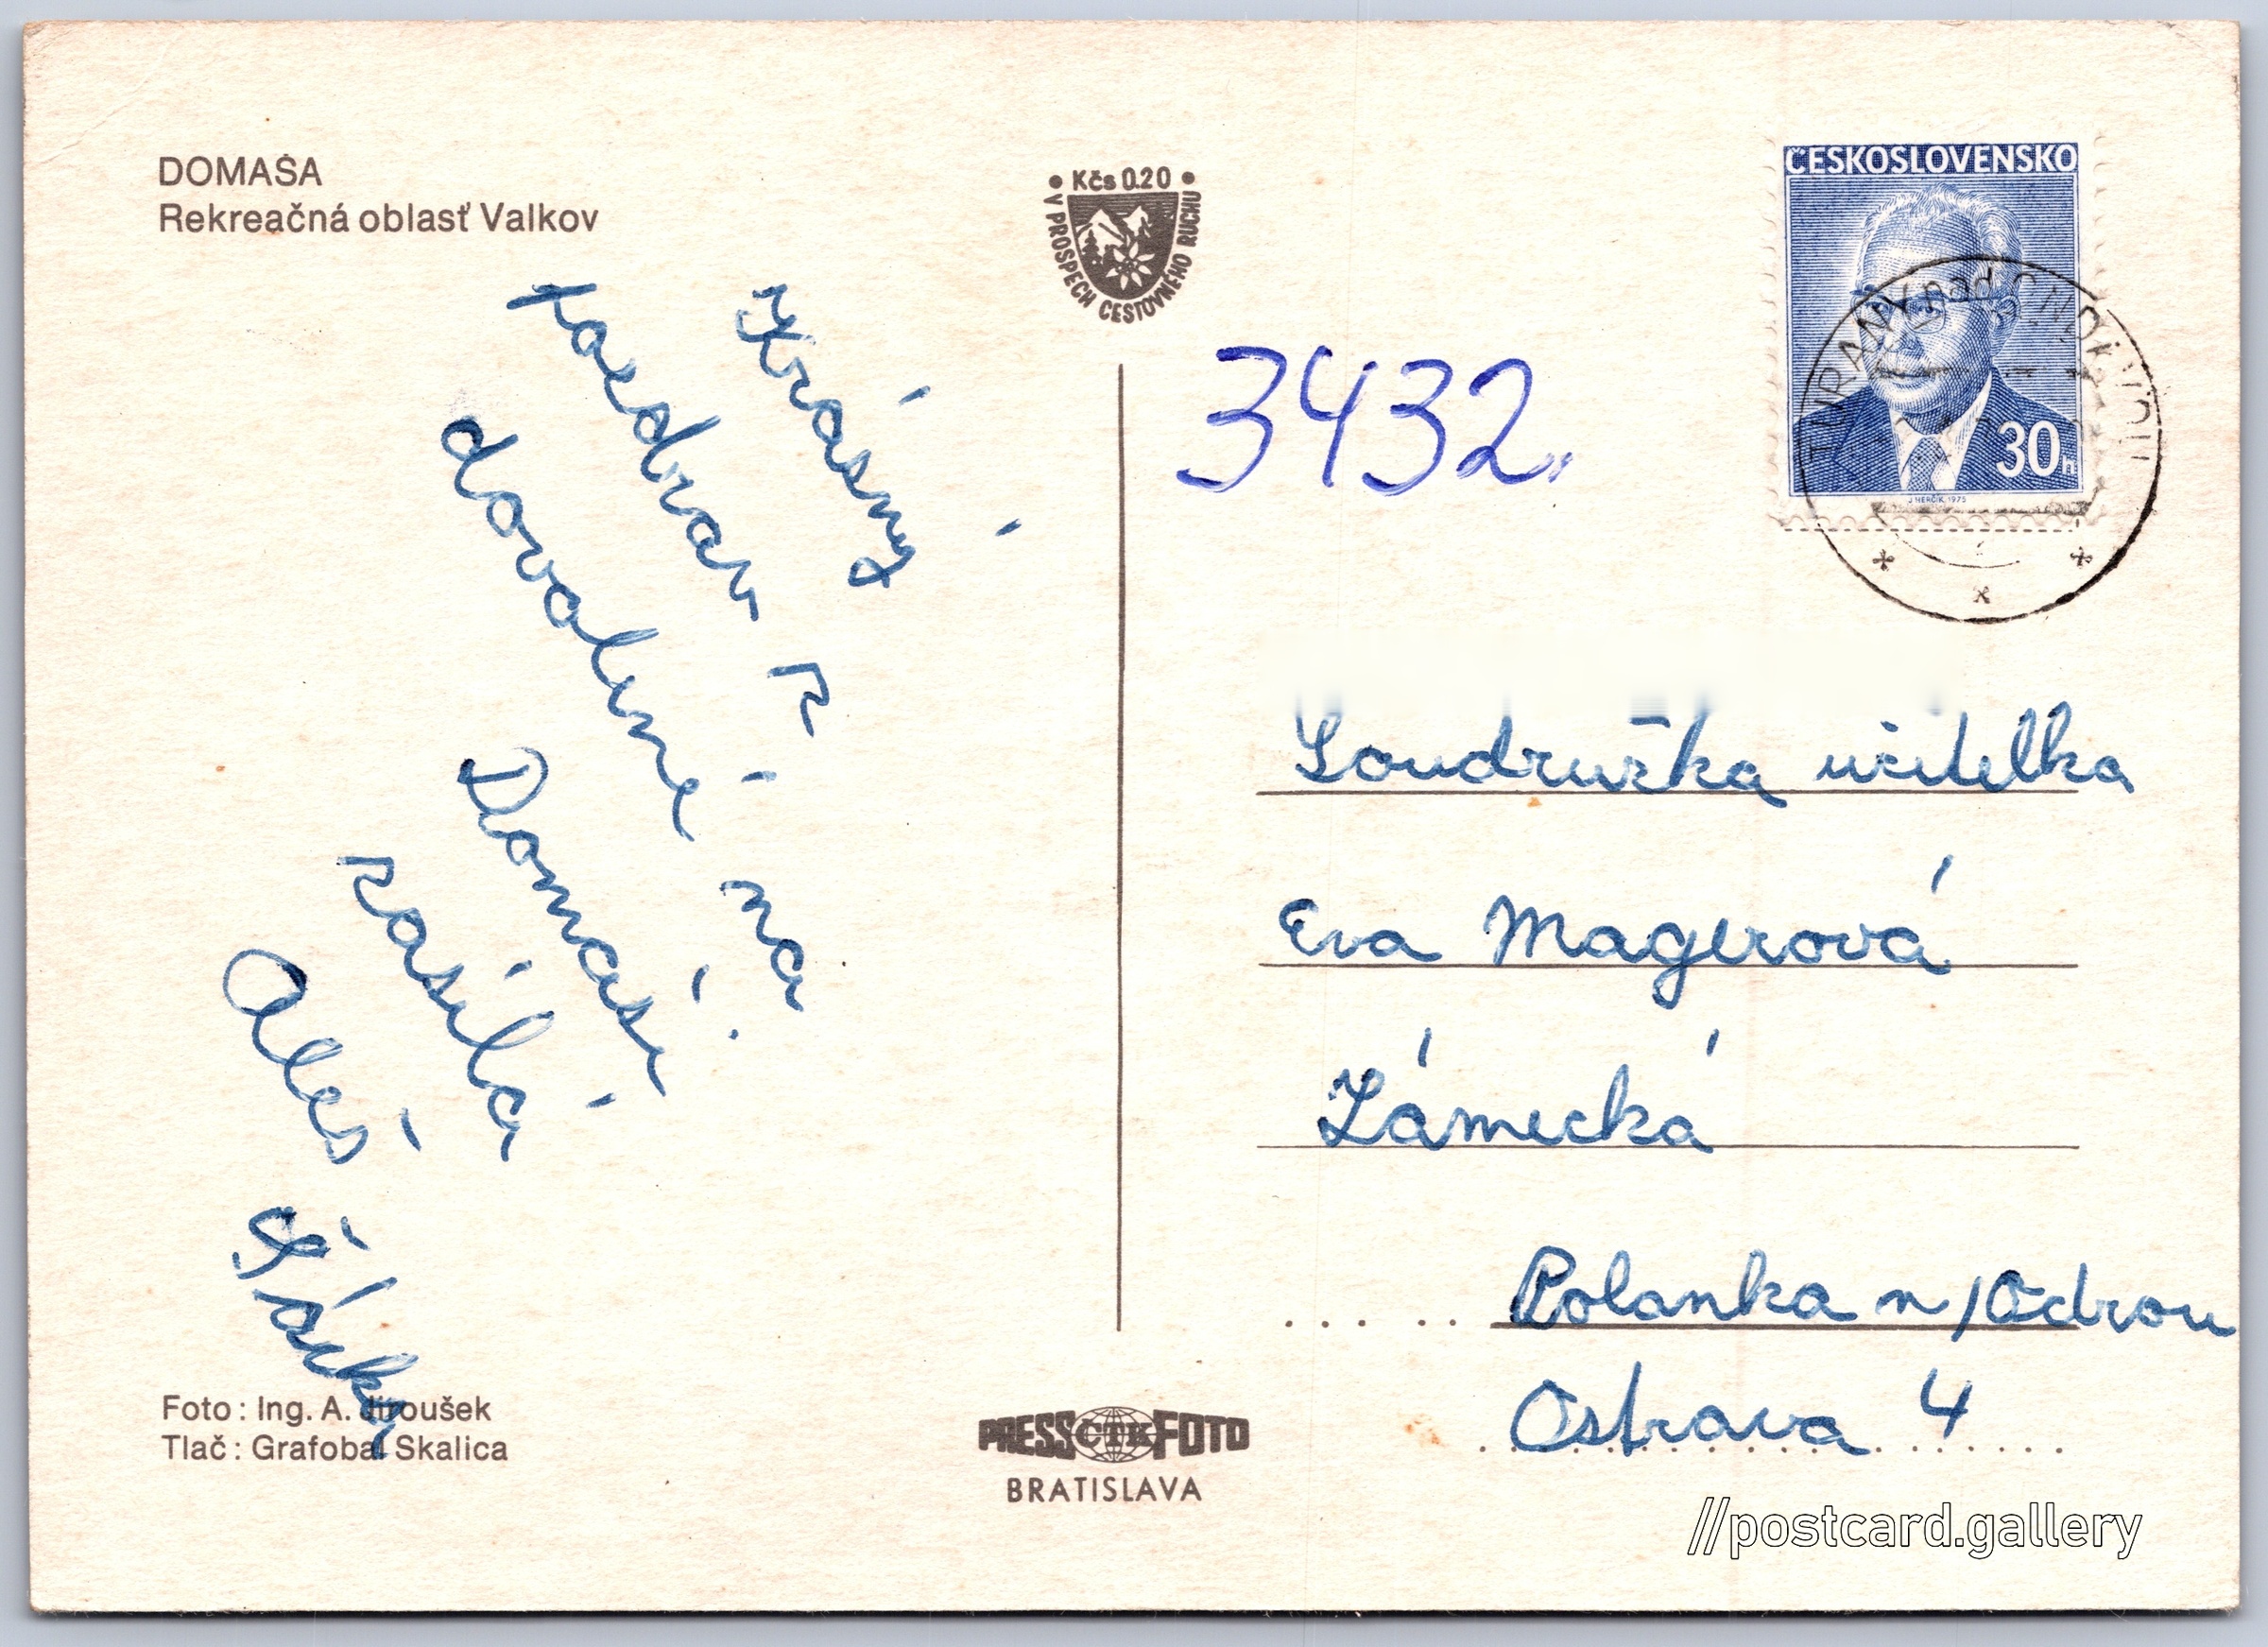 DOMAŠA
Rekreačná oblasť Valkov
• Kčs 0.20 •
V PROSPECH CESTOVNÉHO RUCHU
ČESKOSLOVENSKO
30h
J. HERČÍK 1975
TURANY nad ONDAVOU
3432.
Krásný
pozdrav z
dovolené na
Domaši
zasílá
Aleš
Šárky
Soudružka učitelka
Eva Magerová
Zámecká
Polanka n/Odrou
Ostrava 4
Foto: Ing. A. Jiroušek
Tlač: Grafobal Skalica
PRESSČTKFOTO
BRATISLAVA
//postcard.gallery